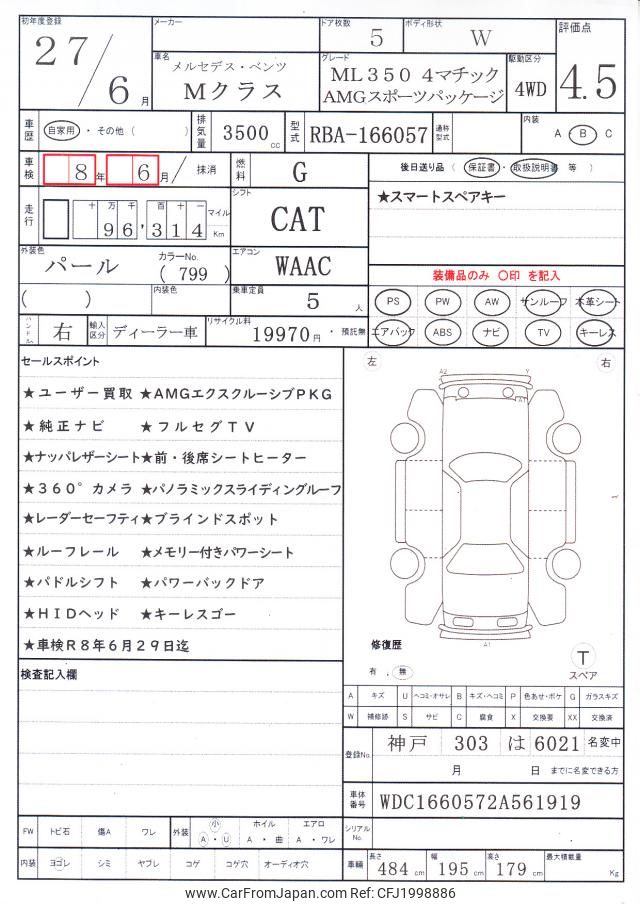 初年度登録
27/6月
メーカー
ドア枚数
5
ボディ形状
W
評価点
4.5
車名
メルセデス・ベンツ
Mクラス
グレード
ML350 4マチック
AMGスポーツパッケージ
駆動区分
4WD
車歴
自家用・その他( )
排気量
3500cc
型式
RBA-166057
通称型式
内装
A・B C
車検
8年 6月/ 抹消
燃料
G
後日送り品( 保証書・取扱説明書 等 )
走行
十 万 千 百 十 一
96,314
マイル
Km
シフト
CAT
★スマートスペアキー
外装色
パール
カラーNo.
( 799 )
エアコン
WAAC
( )
内装色
乗車定員
5人
装備品のみ 〇印 を記入
PS PW AW サンルーフ 本革シート
エアバック ABS ナビ TV キーレス
ハンドル
右
輸入区分
ディーラー車
リサイクル料
19970円・預託無
セールスポイント
★ユーザー買取 ★AMGエクスクルーシブPKG
★純正ナビ ★フルセグTV
★ナッパレザーシート★前・後席シートヒーター
★360°カメラ ★パノラミックスライディングルーフ
★レーダーセーフティ★ブラインドスポット
★ルーフレール ★メモリー付きパワーシート
★パドルシフト ★パワーバックドア
★HIDヘッド ★キーレスゴー
★車検R8年6月29日迄
左
右
A2
Y
A1
A1
修復歴
有 . 無
T
スペア
検査記入欄
A キズ U ヘコミ・オサレ B キズ・ヘコミ P 色あせ・ボケ G ガラスキズ
W 補修跡 S サビ C 腐食 X 交換要 XX 交換済
登録No.
神戸 303 は 6021 名変中
月 日 までに名変できる方
車体番号
WDC1660572A561919
シリアルNo.
FW トビ石 傷A ワレ 外装 小 A・U ホイル A・曲 エアロ A・ワレ
内装 ヨゴレ シミ ヤブレ コゲ コゲ穴 オーディオ穴
車輛
長さ
484cm
幅
195cm
高さ
179cm
最大積載量
Kg
www.CarFromJapan.com Ref: CFJ1998886